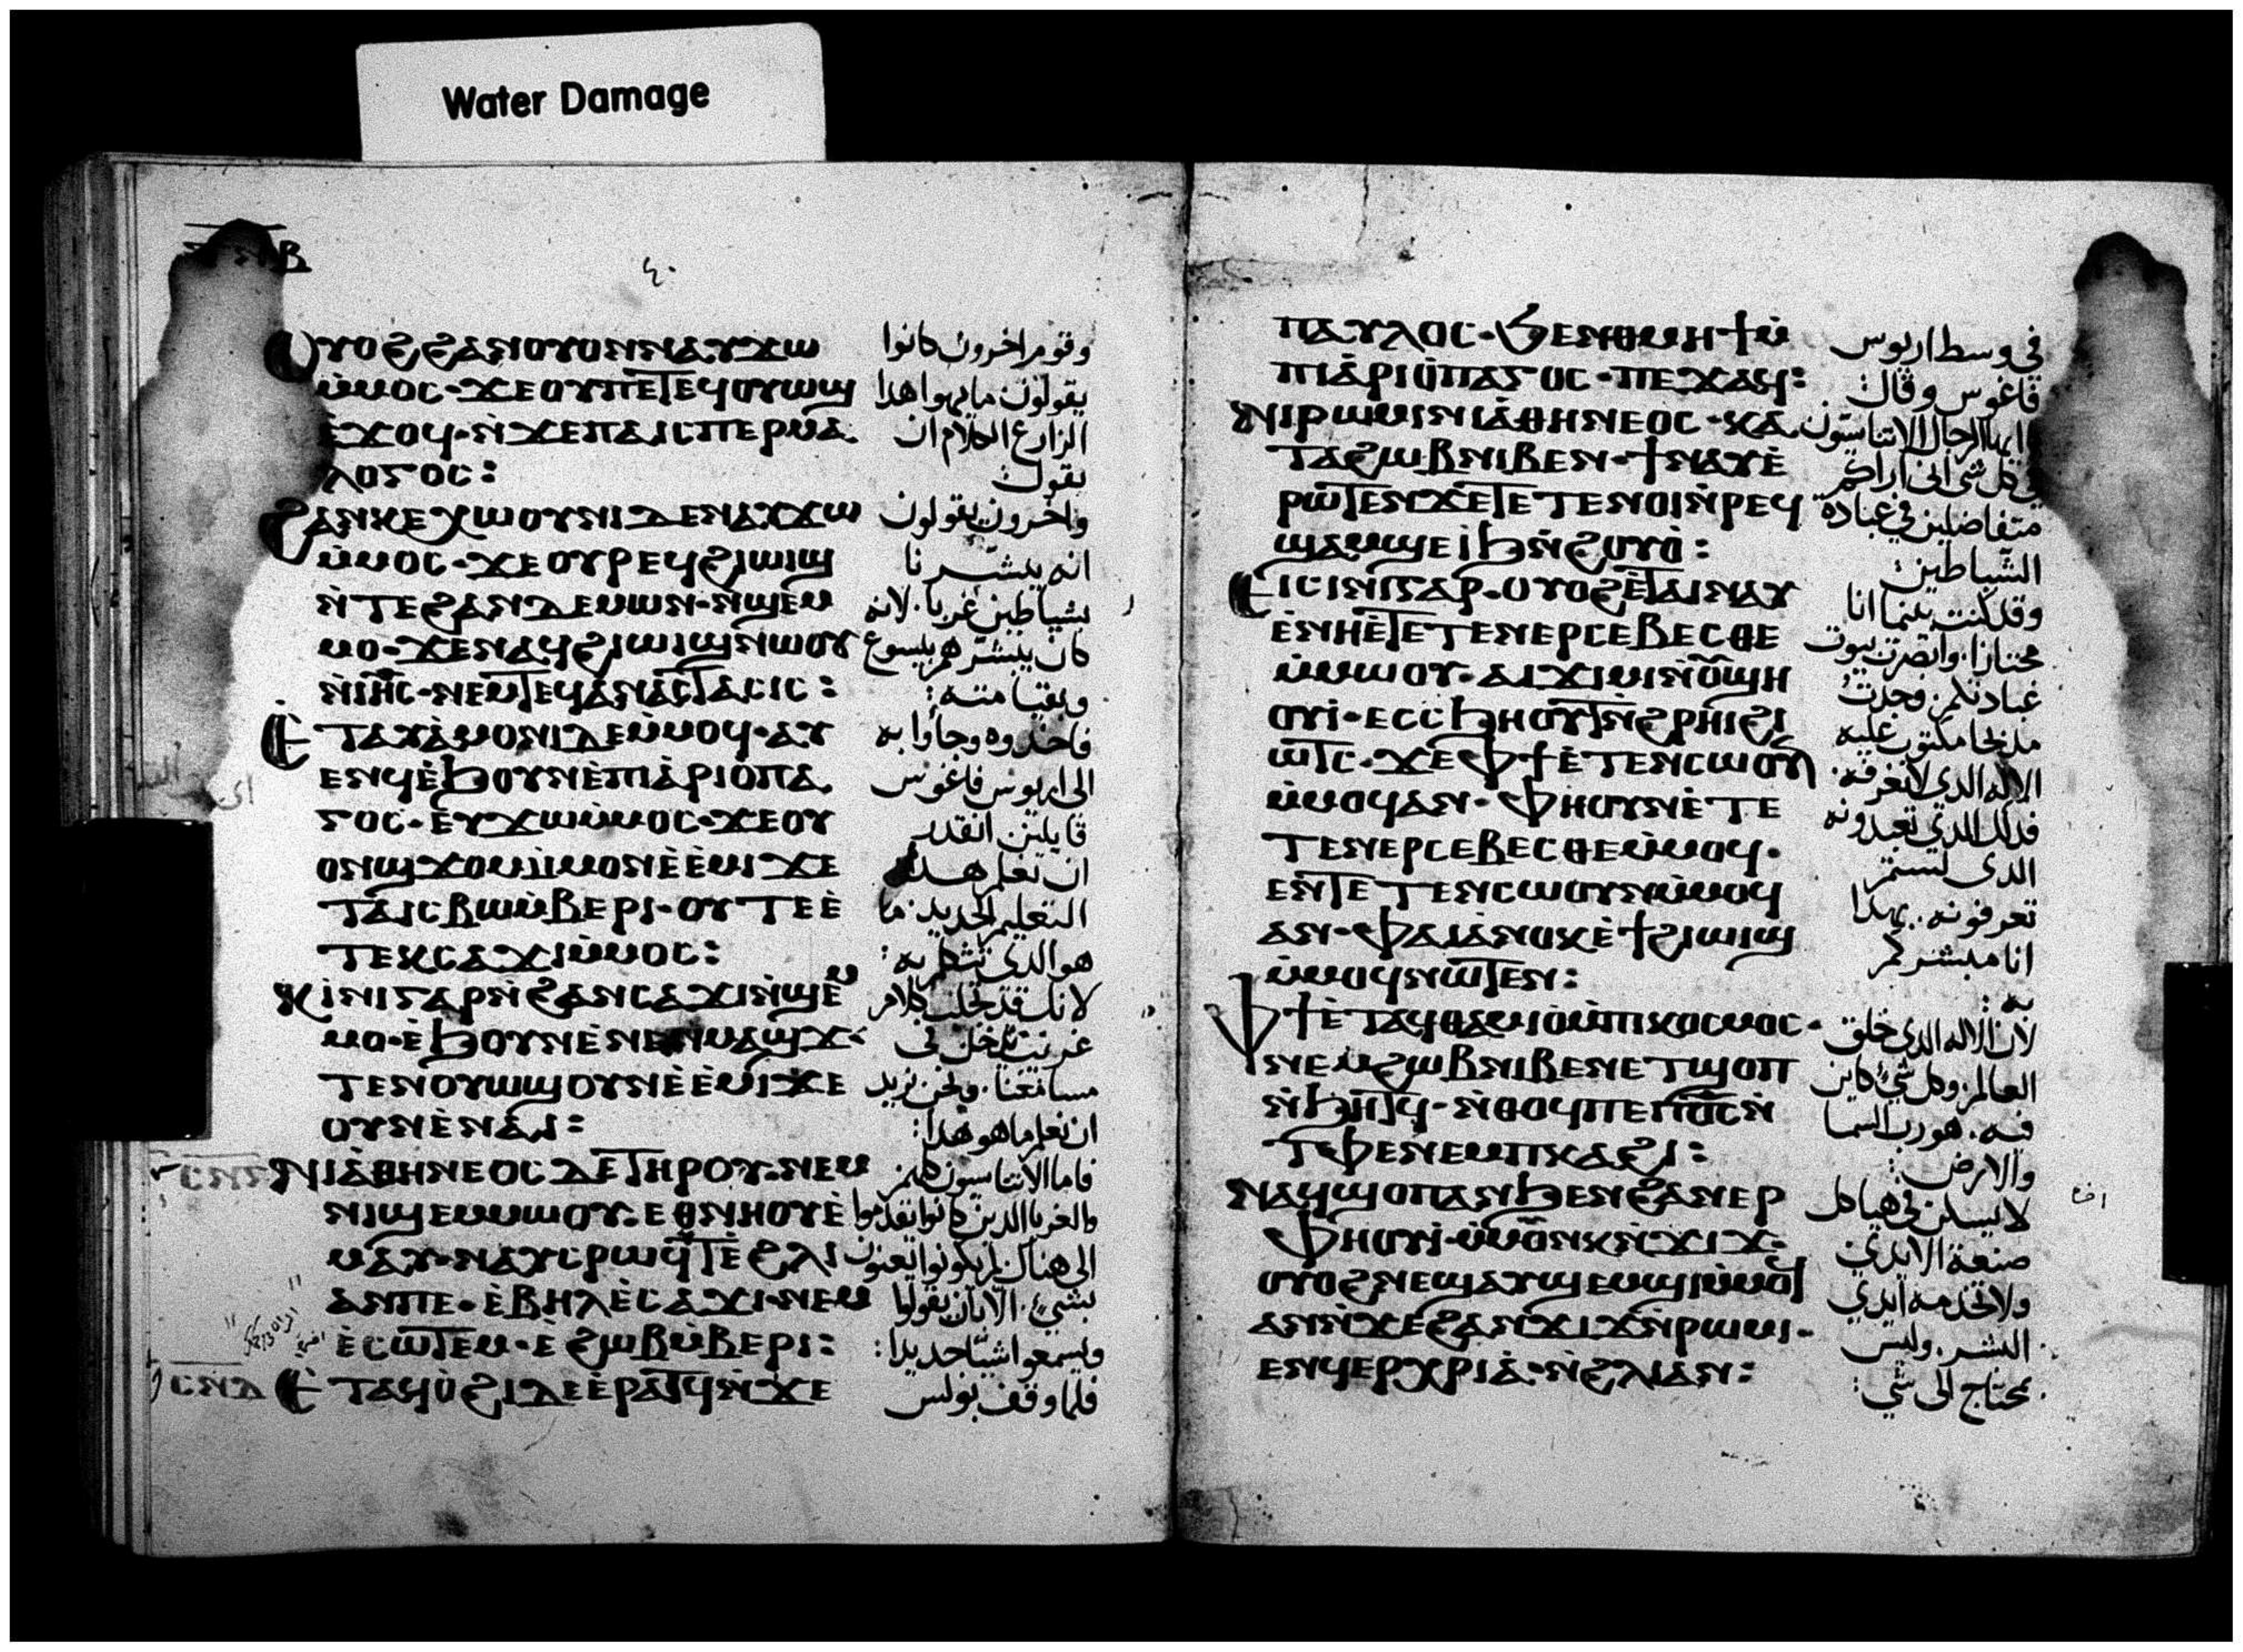 Water Damage
ⲟⲩⲟϩ ϩⲁⲛⲟⲩⲟⲛ ⲛⲁⲩϫⲱ
ⲙ̇ⲙⲟⲥ· ϫⲉ ⲟⲩ ⲡⲉⲧⲉϥⲟⲩⲱϣ
ⲉ̇ϫⲟϥ· ⲛ̇ϫⲉ ⲡⲁⲓⲥⲡⲉⲣⲙⲁ
ⲗⲟⲅⲟⲥ:
ϩⲁⲛⲕⲉⲭⲱⲟⲩⲛⲓ ⲇⲉ ⲛⲁⲩϫⲱ
ⲙ̇ⲙⲟⲥ· ϫⲉ ⲟⲩⲣⲉϥϩⲓⲱⲓϣ
ⲛ̇ⲧⲉ ϩⲁⲛⲇⲉⲙⲱⲛ· ⲛ̇ϣⲉⲙ
ⲙⲟ· ϫⲉ ⲛⲁϥϩⲓⲱⲓϣ ⲛⲱⲟⲩ
ⲛ̇ⲓⲏ̅ⲥ̅· ⲛⲉⲙ ⲧⲉϥⲁ̇ⲛⲁⲥⲧⲁⲥⲓⲥ:
ⲉ̇ⲧⲁⲩⲁ̇ⲙⲟⲛⲓ ⲇⲉ ⲙ̇ⲙⲟϥ· ⲁⲩ
ⲉⲛϥ ⲉ̇ϧⲟⲩⲛ ⲉ̇ⲡⲓⲁ̇ⲣⲓⲟⲡⲁ
ⲅⲟⲥ· ⲉ̇ⲩϫⲱ ⲙ̇ⲙⲟⲥ· ϫⲉ ⲟⲩ
ⲟⲛϣϫⲟⲙ ⲙ̇ⲙⲟⲛ ⲉ̇ⲉ̇ⲙⲓ ϫⲉ
ⲧⲁⲓⲥⲃⲱ ⲙ̇ⲃⲉⲣⲓ· ⲟⲩ ⲧⲉ ⲉ̇
ⲧⲉⲕⲥⲁϫⲓ ⲙ̇ⲙⲟⲥ:
ⲕⲓ̇ⲛⲓ ⲅⲁⲣ ⲛ̇ϩⲁⲛⲥⲁϫⲓ ⲛ̇ϣⲉⲙ
ⲙⲟ· ⲉ̇ϧⲟⲩⲛ ⲉ̇ⲛⲉⲛⲙⲁϣϫ·
ⲧⲉⲛⲟⲩⲱϣ ⲟⲩⲛ ⲉ̇ⲉ̇ⲙⲓ ϫⲉ
ⲟⲩ ⲛⲉ̇ ⲛⲁⲓ:
ⲛⲓⲁ̇ⲑⲏⲛⲉⲟⲥ ⲇⲉ ⲧⲏⲣⲟⲩ· ⲛⲉⲙ
ⲛⲓϣⲉⲙⲙⲱⲟⲩ· ⲉⲑⲛⲏⲟⲩ ⲉ̇
ⲙⲁⲩ· ⲛⲁⲩⲥⲣⲱϥⲧ ⲉ̇ϩⲗⲓ
ⲁⲛ ⲡⲉ· ⲉ̇ⲃⲏⲗ ⲉ̇ⲥⲁϫⲓ· ⲛⲉⲙ
ⲉ̇ⲥⲱⲧⲉⲙ· ⲉ̇ϩⲱⲃ ⲙ̇ⲃⲉⲣⲓ:
ⲥⲛⲇ ⲉ̇ⲧⲁϥⲟ̇ϩⲓ ⲇⲉ ⲉ̇ⲣⲁⲧϥ ⲛ̇ϫⲉ
وقوم اخرون كانوا
يقولون ما يهوا هذا
الزارع الكلام ان
يقول
واخرون يقولون
انه يبشرنا
بشياطين غربا. لانه
كان يبشرهم بيسوع
وبقيامته:
فاخذوه وجاوا به
الى اريوس فاغوس
قايلين انقدر
ان نعلم هذا
التعليم الجديد. ما
هو الذي تتكلم به:
لانك قد تجلب كلام
غريب تدخل في
مسامعنا. ونحن نريد
ان نعلم ما هو هذا:
فاما الاثناسيون كلهم
والغربا الذين كانوا يقدموا
الى هناك لم يكونوا يعنون
بشيء. الا بان يقولوا
ويسمعوا شيئا جديدا:
فلما وقف بولس
ⲡⲁⲩⲗⲟⲥ· ϧⲉⲛ ⲑⲙⲏϯ ⲙ̇
ⲡⲓⲁ̇ⲣⲓⲟ̇ⲡⲁⲅⲟⲥ· ⲡⲉϫⲁϥ:
ⲛⲓⲣⲱⲙⲓ ⲛⲓⲁ̇ⲑⲏⲛⲉⲟⲥ· ⲕⲁ
ⲧⲁ ϩⲱⲃ ⲛⲓⲃⲉⲛ· ϯⲛⲁⲩ ⲉ̇
ⲣⲱⲧⲉⲛ ϫⲉ ⲧⲉⲧⲉⲛⲟⲓ ⲛ̇ⲣⲉϥ
ϣⲁⲙϣⲉ ⲓϧ ⲛ̇ϩⲟⲩⲟ̇:
ⲉⲓⲥⲓⲛⲓ ⲅⲁⲣ· ⲟⲩⲟϩ ⲉ̇ⲧⲁⲓⲛⲁⲩ
ⲉ̇ⲛⲏⲉ̇ⲧⲉⲧⲉⲛⲉⲣⲥⲉⲃⲉⲥⲑⲉ
ⲙ̇ⲙⲱⲟⲩ· ⲁⲓϫⲓⲙⲓ ⲛ̇ⲟⲩϣⲏ
ⲟⲩⲓ̇· ⲉⲥⲥϧⲏⲟⲩⲧ ⲛ̇ϩⲣⲏⲓ ϩⲓ
ⲱⲧⲥ· ϫⲉ ⲫϯ ⲉ̇ⲧⲉⲛⲥⲱⲟⲩⲛ
ⲙ̇ⲙⲟϥ ⲁⲛ· ⲫⲏ ⲟⲩⲛ ⲉ̇ⲧⲉ
ⲧⲉⲛⲉⲣⲥⲉⲃⲉⲥⲑⲉ ⲙ̇ⲙⲟϥ·
ⲉⲛⲧⲉⲧⲉⲛⲥⲱⲟⲩⲛ ⲙ̇ⲙⲟϥ
ⲁⲛ· ⲫⲁⲓ ⲁ̇ⲛⲟⲕ ⲉ̇ϯϩⲓⲱⲓϣ
ⲙ̇ⲙⲟϥ ⲛⲱⲧⲉⲛ:
ⲫϯ ⲉ̇ⲧⲁϥⲑⲁⲙⲓⲟ̇ ⲙ̇ⲡⲓⲕⲟⲥⲙⲟⲥ·
ⲛⲉⲙ ϩⲱⲃ ⲛⲓⲃⲉⲛ ⲉⲧϣⲟⲡ
ⲛ̇ϧⲏⲧϥ· ⲛ̇ⲑⲟϥ ⲡⲉ ⲡⲟ̅ⲥ̅ ⲛ̇
ⲧⲫⲉ ⲛⲉⲙ ⲡⲕⲁϩⲓ:
ⲛⲁϥϣⲟⲡ ⲁⲛ ϧⲉⲛ ϩⲁⲛⲉⲣ
ⲫⲏⲟⲩⲓ̇· ⲙ̇ⲙⲟⲩⲛⲕ ⲛ̇ϫⲓϫ·
ⲟⲩⲟϩ ⲛⲉϣⲁⲩϣⲉⲙϣⲓ ⲙ̇ⲙⲟϥ
ⲁⲛ ⲛ̇ϫⲉ ϩⲁⲛϫⲓϫ ⲛ̇ⲣⲱⲙⲓ·
ⲉⲛϥⲉⲣⲭⲣⲓⲁ̇· ⲛ̇ϩⲗⲓ ⲁⲛ:
في وسط اريوس
فاغوس وقال
ايها الرجال الاثناسيون
في كل شي اني اراكم
متفاضلين في عبادة
الشياطين:
وقد كنت بينما انا
مجتازا. وابصرت بيوت
عبادتكم. وجدت
مذبحا مكتوب عليه
الاله الذي لا يعرفه.
فذلك الذي تعبدونه
الذي لستم
تعرفونه. بهذا
انا مبشركم
به:
لان الاله الذي خلق
العالم. وكل شيء كاين
فيه. هو رب السما
والارض:
لا يسكن في هياكل
صنعة الايدي
ولا تخدمه ايدي
البشر. وليس
يحتاج الى شي: